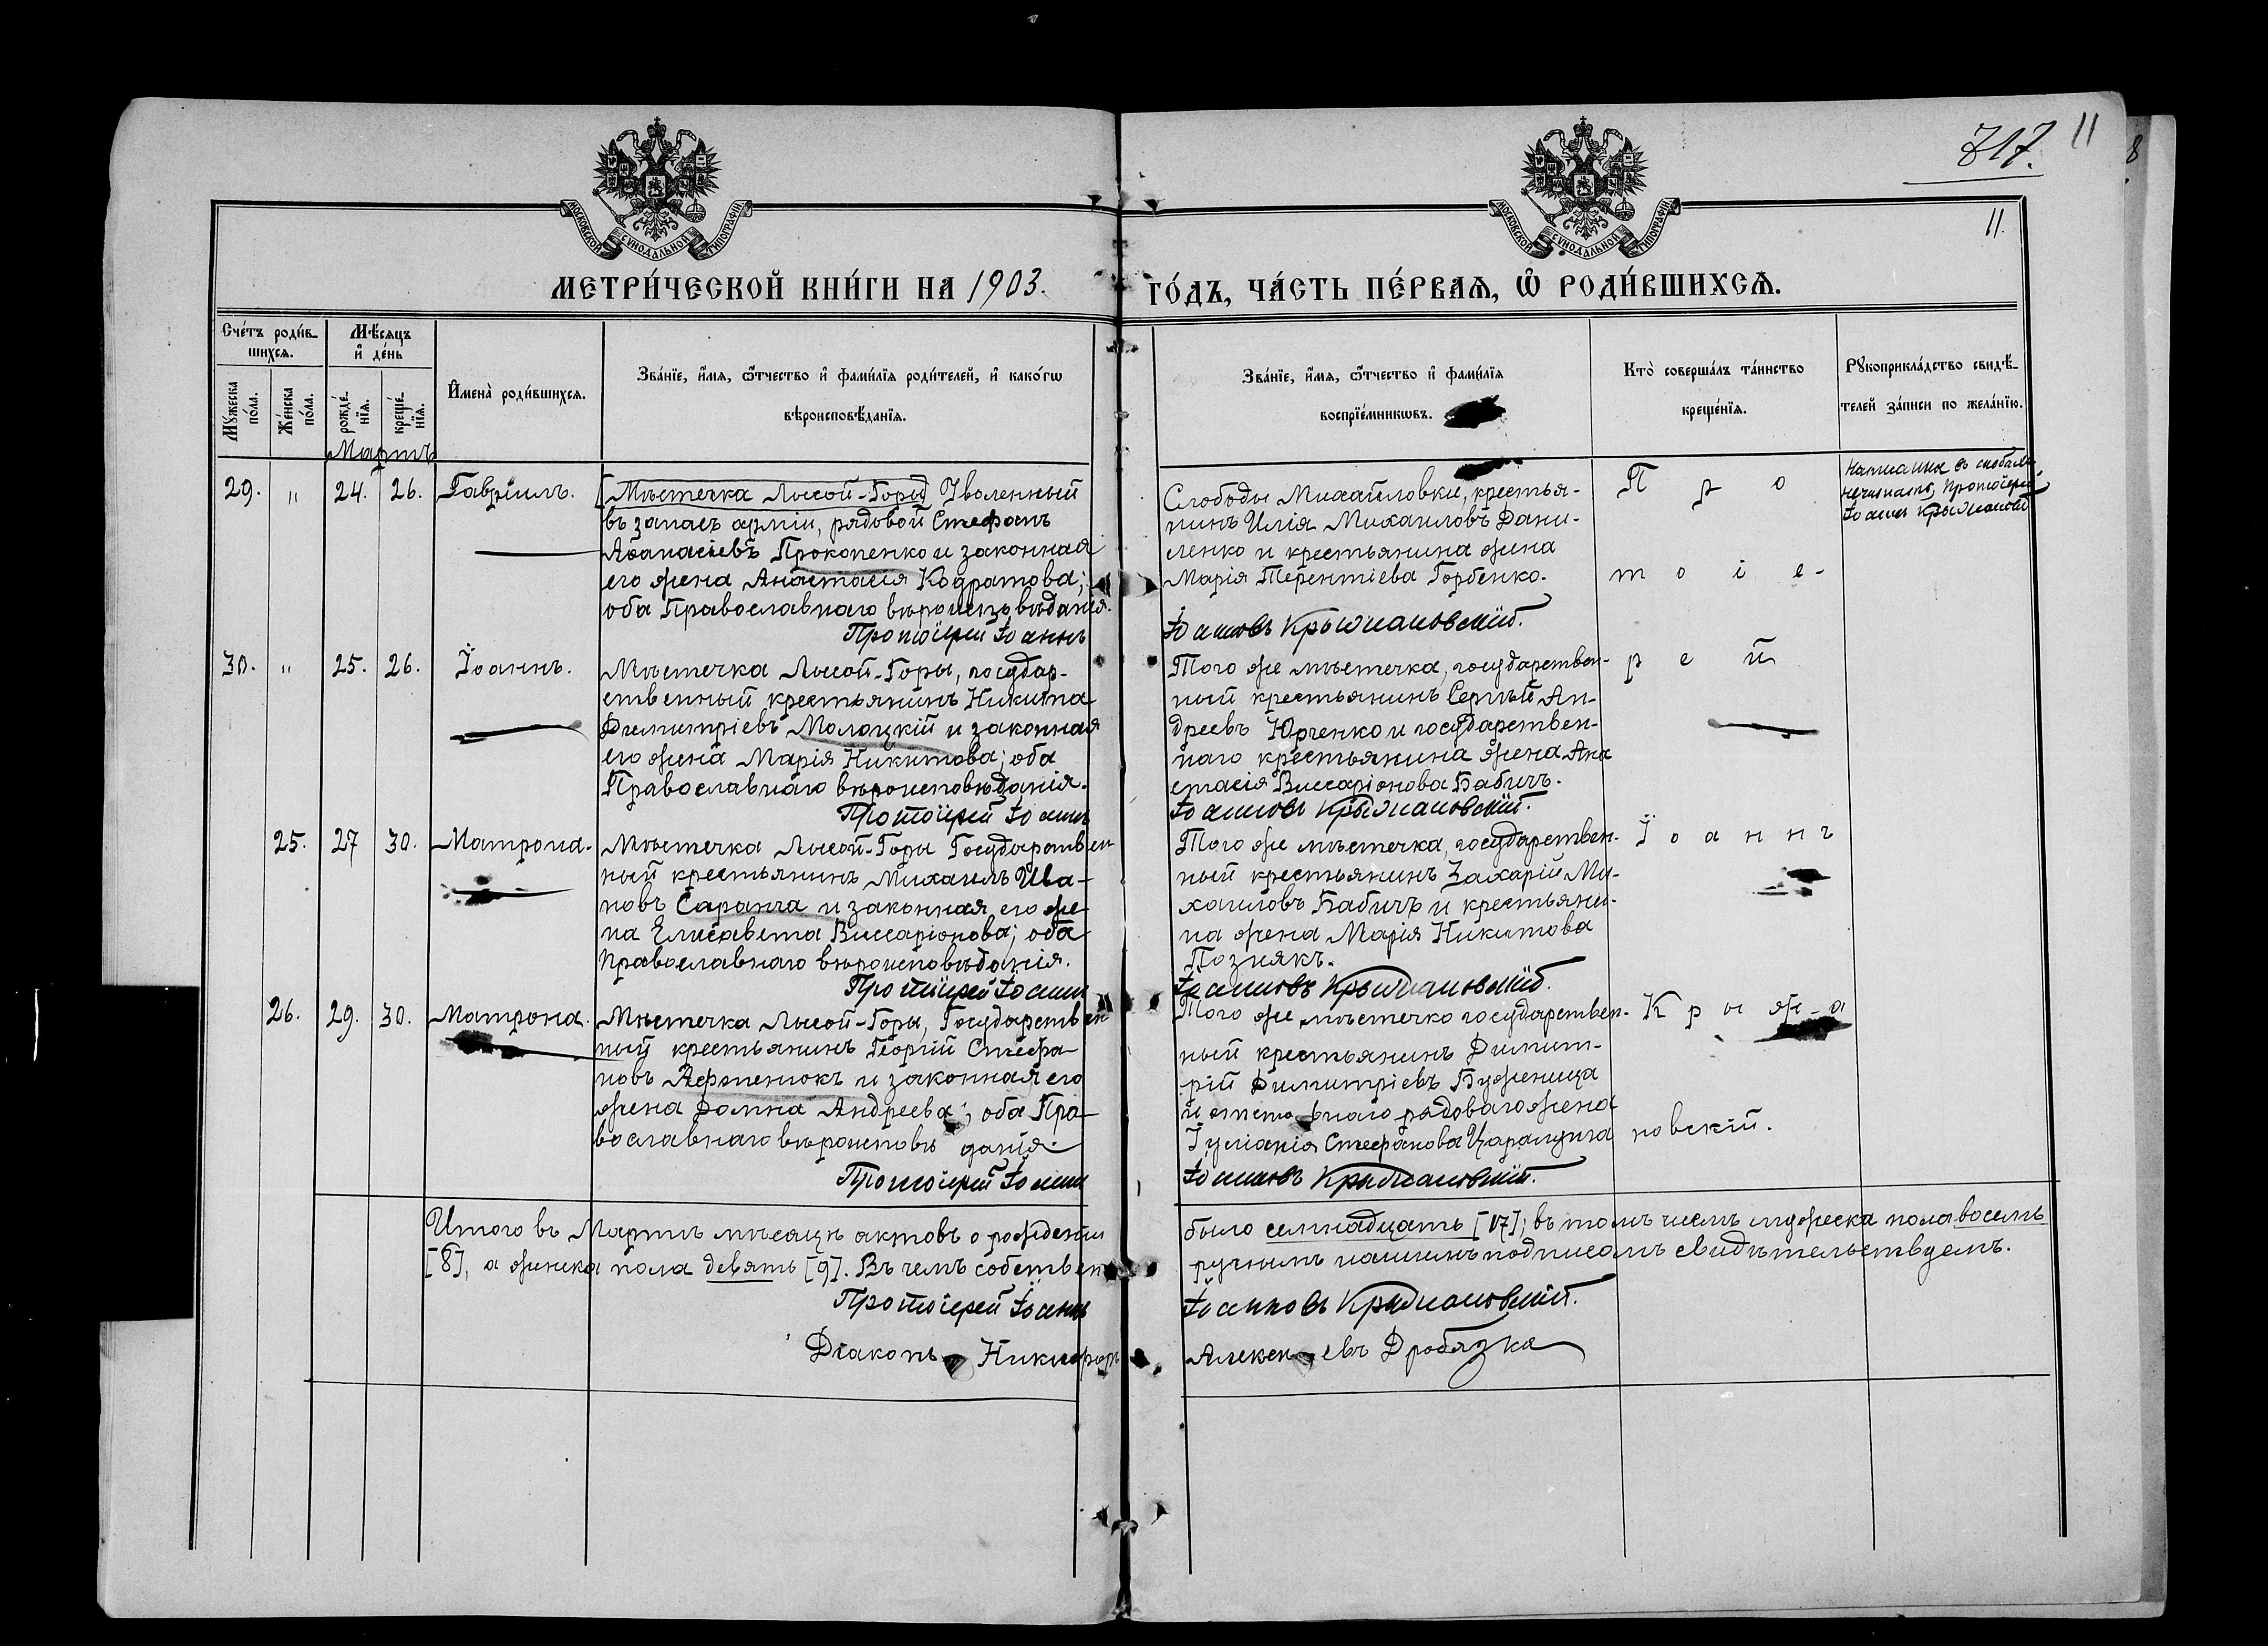 717.
11
11.
МОСКОВСКОЙ СУНОДАЛЬНОЙ ТИПОГРАФІИ
МОСКОВСКОЙ СУНОДАЛЬНОЙ ТИПОГРАФІИ
МЕТРИ́ЧЕСКОЙ КНИ́ГИ НА 1903. ГО́ДЪ, ЧА́СТЬ ПЕ́РВАѦ, Ѽ РОДИ́ВШИХСѦ.
Сче́тъ роди́в-
шихсѧ.
Мѣ́сѧцъ
и҆ де́нь
Мꙋ́жеска
по́ла.
Же́нска
по́ла.
рожде́-
нїѧ.
креще́-
нїѧ.
И҆мена̀ роди́вшихсѧ.
Зва́нїе, и҆́мѧ, ѻ҆́тчество и҆ фами́лїѧ роди́телей, и҆ како́гѡ
вѣроисповѣ́данїѧ.
Зва́нїе, и҆́мѧ, ѻ҆́тчество и҆ фами́лїѧ
воспрїе́мникѡвъ.
Кто̀ соверша́лъ та́инство
креще́нїѧ.
Рꙋкоприкла́дство свидѣ́-
телей за́писи по жела́нїю.
Мартъ
29. " 24. 26. Гавріилъ.
[Мѣстечка Лысой-Горы] Уволенный
въ запасъ арміи, рядовой Стефанъ
Аѳанасіевъ Прокопенко и законная
его жена Анастасія Кодратова;
оба Православнаго вѣроисповѣданія.
Протоіерей Іоаннъ
Слободы Михайловки, крестья-
нинъ Илія Михаиловъ Дани-
ленко и крестьянина жена
Марія Терентіева Горбенко.
Іоанновъ Крыжановскій.
П р о
т о і е -
Написанна въ скобахъ
нечитать, Протоіерей
Іоаннъ Крыжановскій
30. " 25. 26. Іоаннъ.
Мѣстечка Лысой-Горы, государ-
ственный крестьянинъ Никита
Димитріевъ Молоцкій и законная
его жена Марія Никитова; оба
Православнаго вѣроисповѣданія.
Протоіерей Іоаннъ
Того же мѣстечка, государствен-
ный крестьянинъ Сергѣй Ан-
дреевъ Юрченко и государствен-
наго крестьянина жена Ана
стасія Виссаріонова Бабичъ.
Іоанновъ Крыжановскій.
р е й
25. 27 30. Матрона.
Мѣстечка Лысой-Горы Государствен
ный крестьянинъ Михаилъ Ива-
новъ Саранча и законная его же-
на Елисавета Виссаріонова; оба
Православнаго вѣроисповѣданія.
Протоіерей Іоаннъ
Того же мѣстечка, государствен-
ный крестьянинъ Захарій Ми-
хаиловъ Бабичъ и крестьяни-
на жена Марія Никитова
Познякъ.
Іоанновъ Крыжановскій.
І о а н н ъ
26. 29. 30. Матрона.
Мѣстечка Лысой-Горы, Государствен
ный крестьянинъ Георгій Стефа-
новъ и законная его
жена Домна Андреева; оба Пра-
вославнаго вѣроисповѣ данія.
Протоіерей Іоаннъ
Того же мѣстечко государствен-
ный крестьянинъ Димит-
рій Димитріевъ Буженица
и рядоваго жена
Іуліанія Стефанова
Іоанновъ Крыжановскій.
К р ы ж - а
новскій.
Итого въ Мартѣ мѣсяцѣ актовъ о рожденіи было семнадцать [17]; въ томъ числѣ мужеска пола восемь
[8], а женска пола девять [9]. Въ чемъ собствен ручнымъ нашимъ подписомъ свидѣтельствуемъ.
Протоіерей Іоаннъ Іоанновъ Крыжановскій.
Діаконъ Никифоръ Дробязка